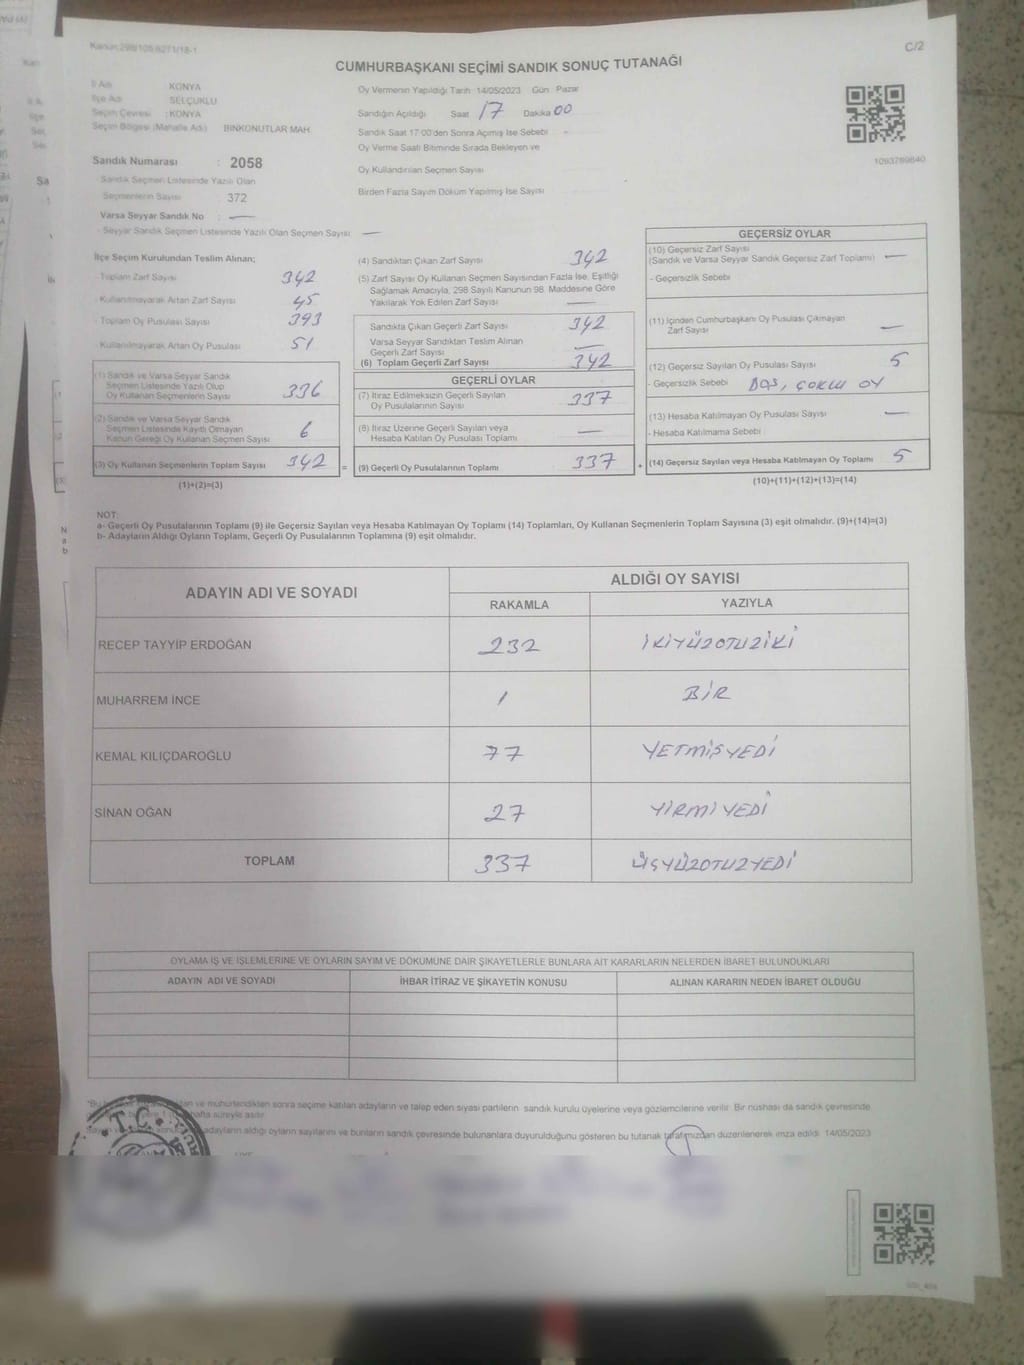 Kanun:298/105,6271/18-1
C/2
CUMHURBAŞKANI SEÇİMİ SANDIK SONUÇ TUTANAĞI
İl Adı KONYA
İlçe Adı SELÇUKLU
Seçim Çevresi : KONYA
Seçim Bölgesi (Mahalle Adı) BİNKONUTLAR MAH
Sandık Numarası : 2058
Sandık Seçmen Listesinde Yazılı Olan
Seçmenlerin Sayısı 372
Varsa Seyyar Sandık No : —
- Seyyar Sandık Seçmen Listesinde Yazılı Olan Seçmen Sayısı —
Oy Vermenin Yapıldığı Tarih 14/05/2023 Gün Pazar
Sandığın Açıldığı Saat 17 Dakika 00
Sandık Saat 17:00'den Sonra Açımış İse Sebebi -
Oy Verme Saati Bitiminde Sırada Bekleyen ve
Oy Kullandırılan Seçmen Sayısı
Birden Fazla Sayım Döküm Yapılmış İse Sayısı
1093769840
İlçe Seçim Kurulundan Teslim Alınan;
- Toplam Zarf Sayısı 342
- Kullanılmayarak Artan Zarf Sayısı 45
- Toplam Oy Pusulası Sayısı 393
- Kullanılmayarak Artan Oy Pusulası 51
(1) Sandık ve Varsa Seyyar Sandık
Seçmen Listesinde Yazılı Olup
Oy Kullanan Seçmenlerin Sayısı 336
(2) Sandık ve Varsa Seyyar Sandık
Seçmen Listesinde Kayıtlı Olmayan
Kanun Gereği Oy Kullanan Seçmen Sayısı 6
(3) Oy Kullanan Seçmenlerin Toplam Sayısı 342 =
(1)+(2)=(3)
(4) Sandıktan Çıkan Zarf Sayısı 342
(5) Zarf Sayısı Oy Kullanan Seçmen Sayısından Fazla İse, Eşitliği
Sağlamak Amacıyla, 298 Sayılı Kanunun 98. Maddesine Göre
Yakılarak Yok Edilen Zarf Sayısı —
Sandıkta Çıkan Geçerli Zarf Sayısı 342
Varsa Seyyar Sandıktan Teslim Alınan
Geçerli Zarf Sayısı —
(6) Toplam Geçerli Zarf Sayısı 342
GEÇERLİ OYLAR
(7) İtiraz Edilmeksizin Geçerli Sayılan
Oy Pusulalarının Sayısı 337
(8) İtiraz Üzerine Geçerli Sayılan veya
Hesaba Katılan Oy Pusulası Toplamı —
(9) Geçerli Oy Pusulalarının Toplamı 337 +
GEÇERSİZ OYLAR
(10) Geçersiz Zarf Sayısı
(Sandık ve Varsa Seyyar Sandık Geçersiz Zarf Toplamı) —
- Geçersizlik Sebebi
(11) İçinden Cumhurbaşkanı Oy Pusulası Çıkmayan
Zarf Sayısı —
(12) Geçersiz Sayılan Oy Pusulası Sayısı 5
- Geçersizlik Sebebi BOŞ, ÇOKLU OY
(13) Hesaba Katılmayan Oy Pusulası Sayısı —
- Hesaba Katılmama Sebebi
(14) Geçersiz Sayılan veya Hesaba Katılmayan Oy Toplamı 5
(10)+(11)+(12)+(13)=(14)
NOT:
a- Geçerli Oy Pusulalarının Toplamı (9) ile Geçersiz Sayılan veya Hesaba Katılmayan Oy Toplamı (14) Toplamları, Oy Kullanan Seçmenlerin Toplam Sayısına (3) eşit olmalıdır. (9)+(14)=(3)
b- Adayların Aldığı Oyların Toplamı, Geçerli Oy Pusulalarının Toplamına (9) eşit olmalıdır.
ADAYIN ADI VE SOYADI
ALDIĞI OY SAYISI
RAKAMLA YAZIYLA
RECEP TAYYİP ERDOĞAN 232 İKİYÜZOTUZİKİ
MUHARREM İNCE 1 BİR
KEMAL KILIÇDAROĞLU 77 YETMİŞYEDİ
SİNAN OĞAN 27 YİRMİYEDİ
TOPLAM 337 ÜÇYÜZOTUZYEDİ
OYLAMA İŞ VE İŞLEMLERİNE VE OYLARIN SAYIM VE DÖKÜMÜNE DAİR ŞİKAYETLERLE BUNLARA AİT KARARLARIN NELERDEN İBARET BULUNDUKLARI
ADAYIN ADI VE SOYADI İHBAR İTİRAZ VE ŞİKAYETİN KONUSU ALINAN KARARIN NEDEN İBARET OLDUĞU
ve mühürlendikten sonra seçime katılan adayların ve talep eden siyasi partilerin sandık kurulu üyelerine veya gözlemcilerine verilir. Bir nüshası da sandık çevresinde
hafta süreyle asılır.
adayların aldığı oyların sayılarını ve bunların sandık çevresinde bulunanlara duyurulduğunu gösteren bu tutanak tarafımızdan düzenlenerek imza edildi. 14/05/2023
T.C.